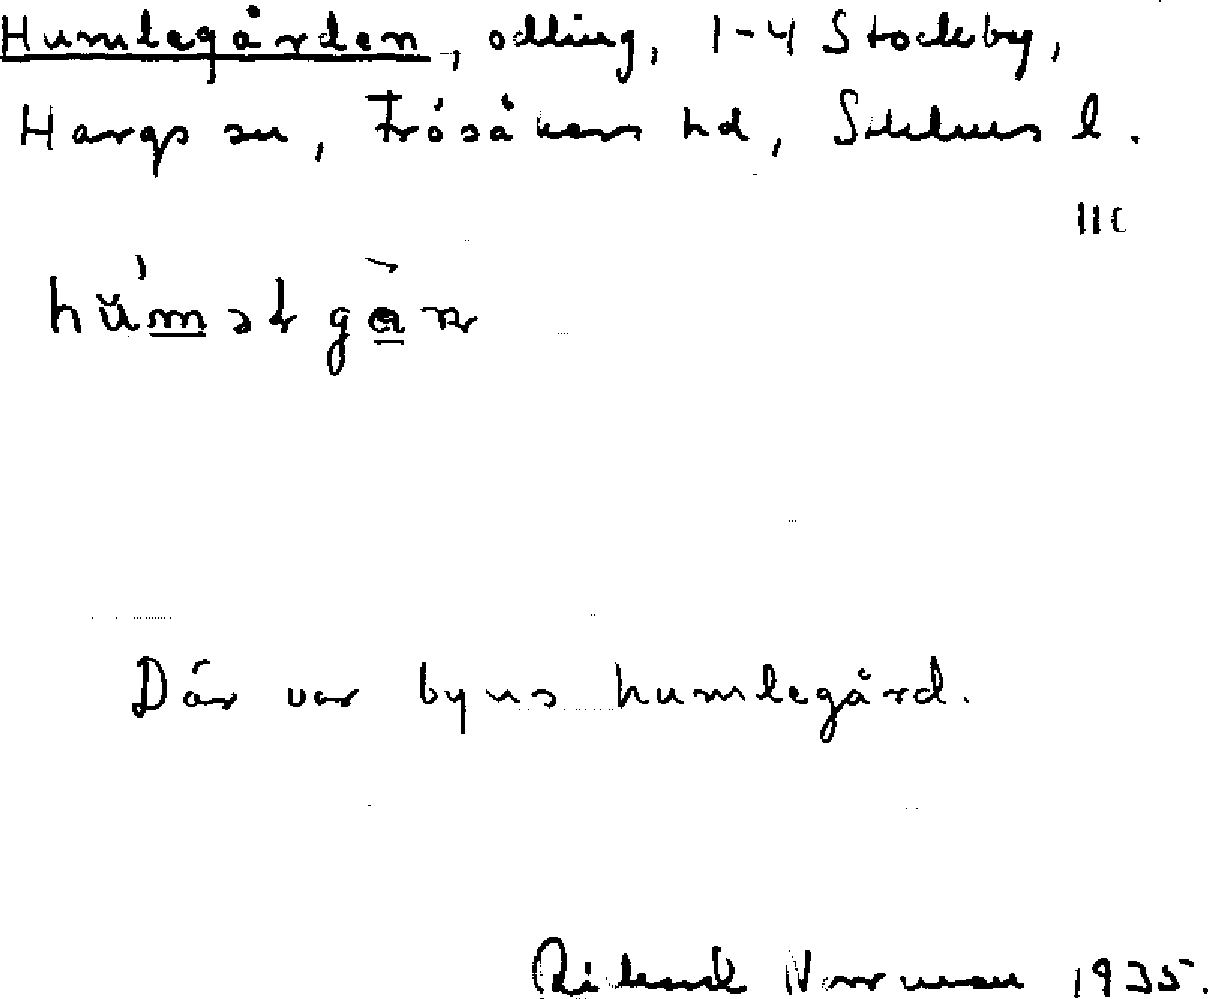 Humlegården, odling, 1-4 Stockby,
Hargs sn, Frösåkers hd, Sthlms l.
Där var byns humlegård.
Rikard Norrman 1935.